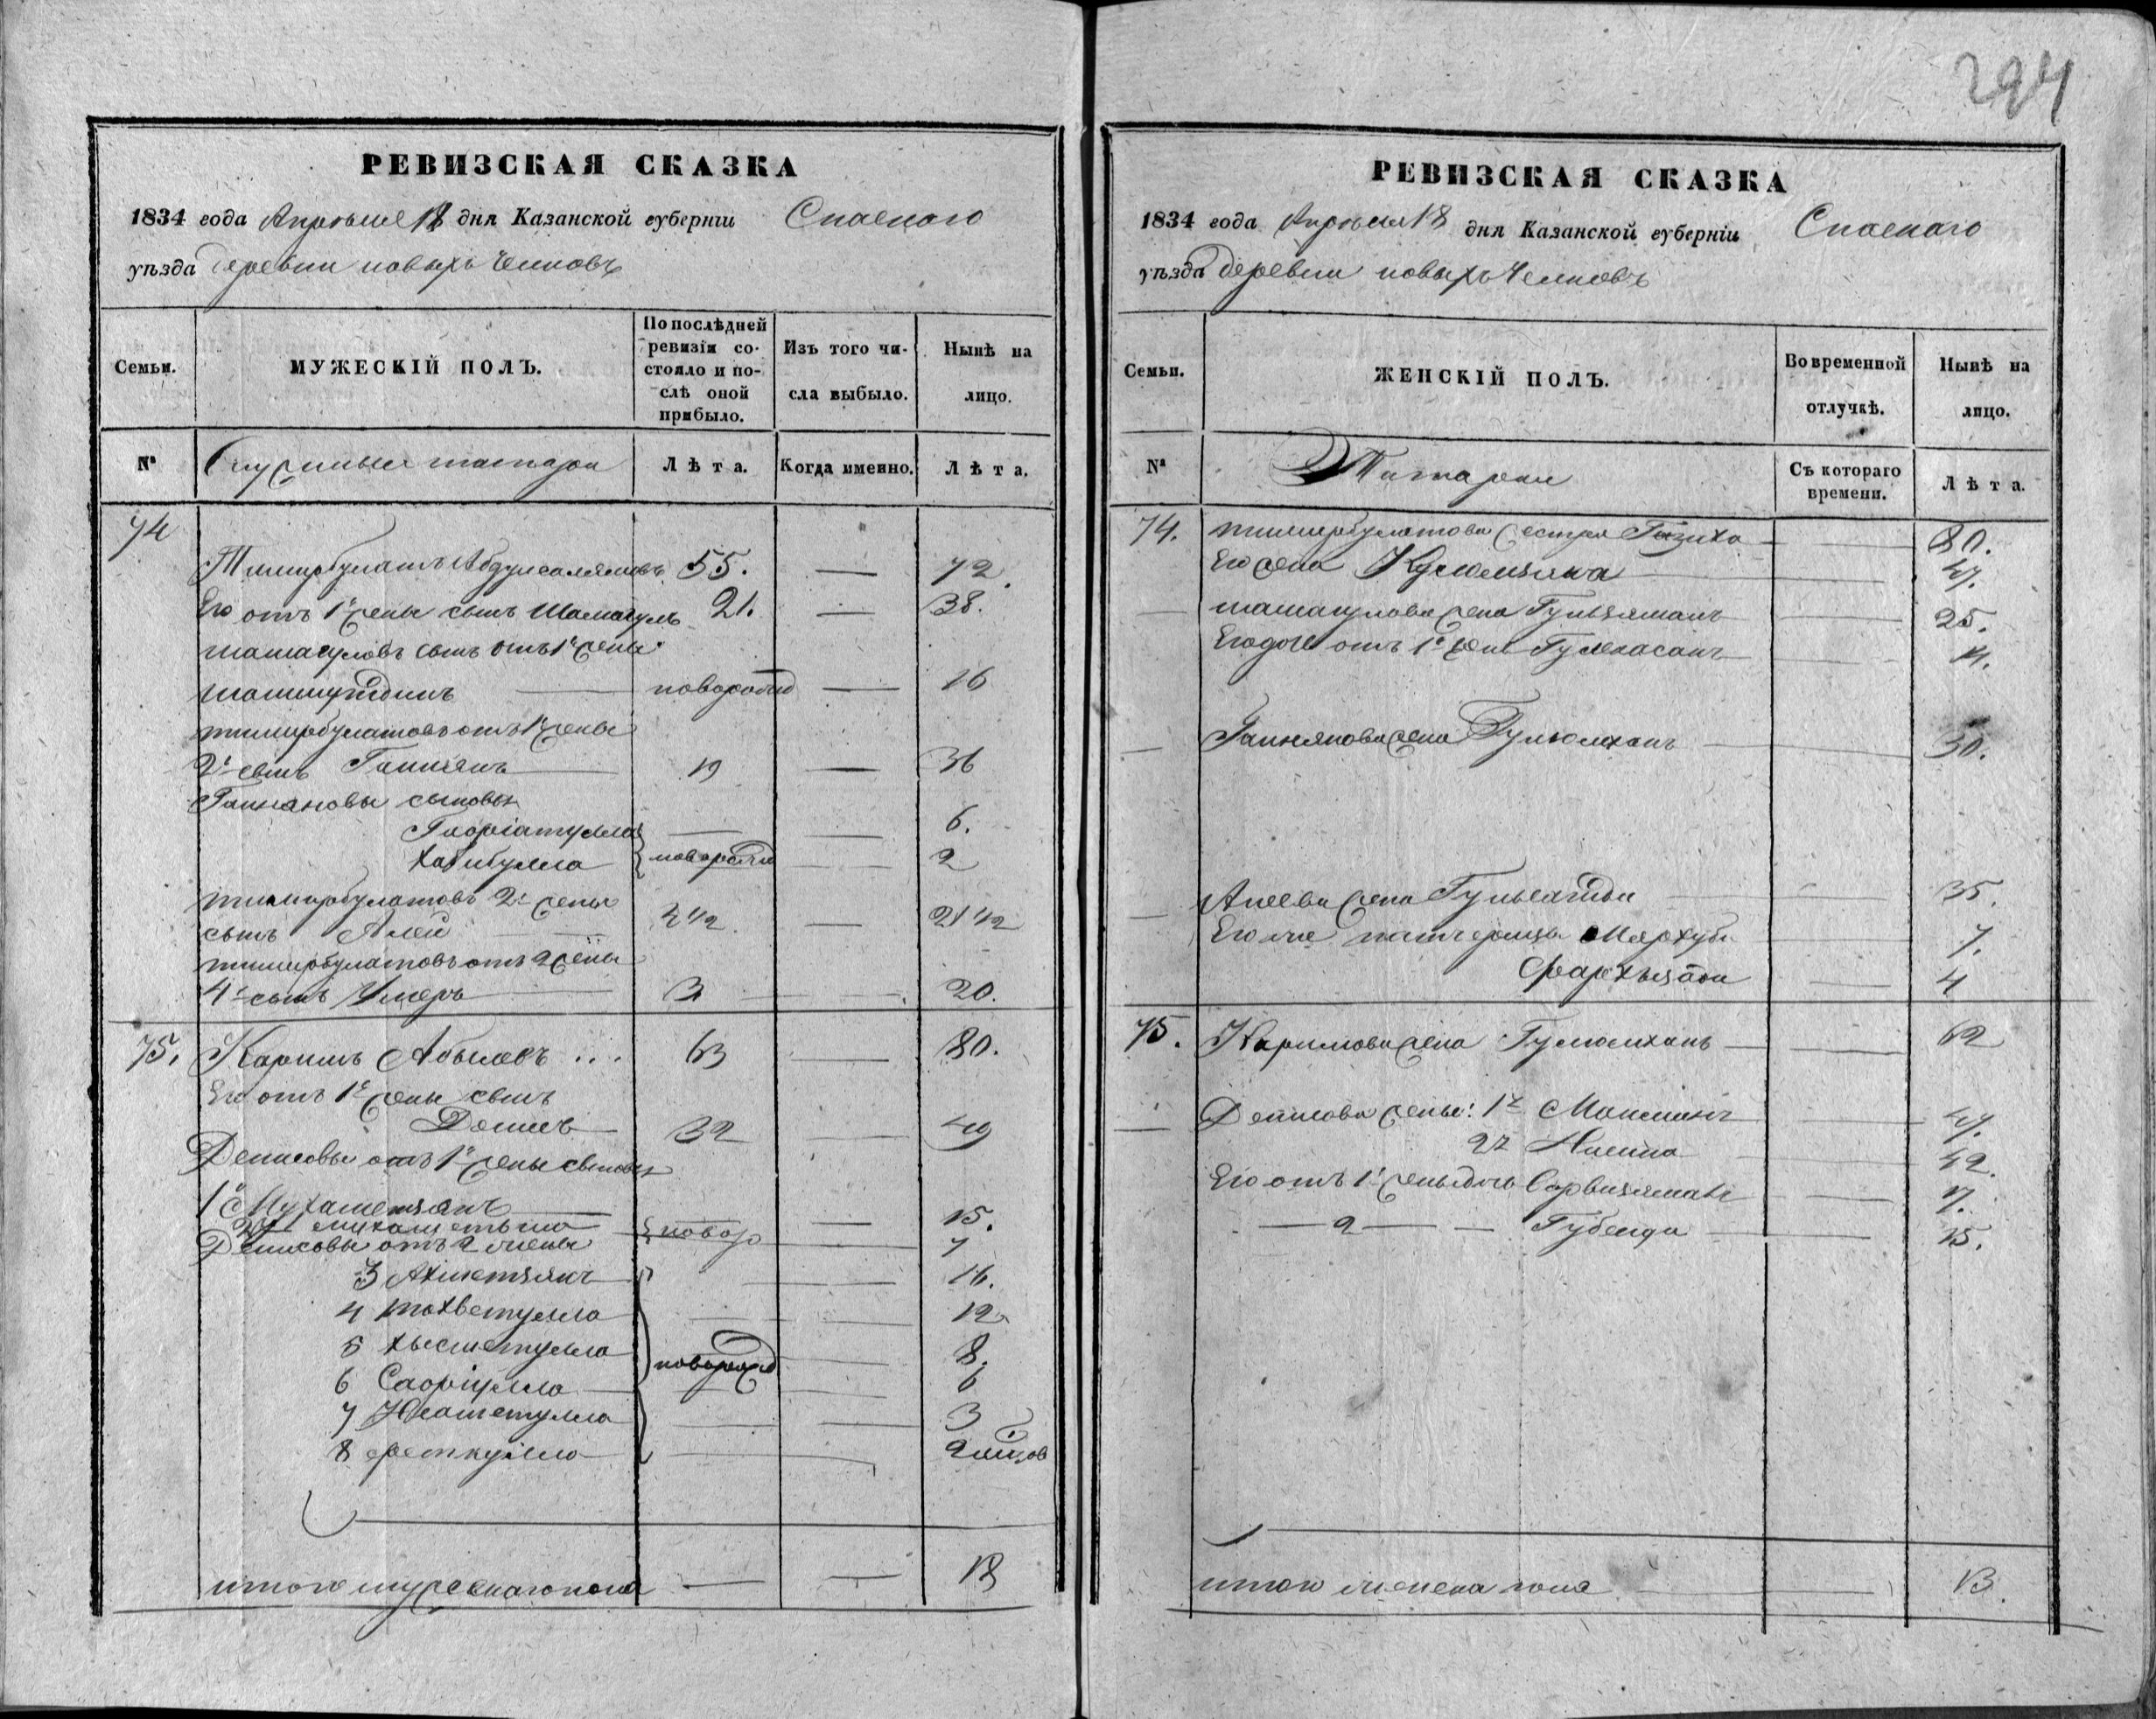 294
РЕВИЗСКАЯ СКАЗКА
1834 года Апреля 18 дня Казанской губерніи Спаского
уѣзда деревни новыхъ Челновъ
Семьи.
МУЖЕСКІЙ ПОЛЪ.
По послѣдней ревизіи состояло и послѣ оной прибыло.
Изъ того числа выбыло.
Нынѣ на лицо.
№ татара Лѣта. Когда именно. Лѣта.
74
Тимирбулатъ Абдулсалямовъ 55. — 72.
Его отъ 1й жены сынъ Шамагулъ 21. — 38.
шамагуловъ сынъ отъ 1й жены
новорожд — 16
тимирбулатовъ отъ 1й жены
2й сынъ Ганнянъ 19 — 36
Ганняновы сыновья
— — 6.
хабибулла новорожд — 2
тимирбулатовъ 2й жены
сынъ Алей 4 1/2 — 21 1/2
тимирбулатовъ от 2 жены
4й сынъ Умеръ 3 — 20.
75. Каримъ Абыловъ 63 — 80.
Его отъ 1й жены сынъ
32 — 49
Денисовы отъ 1й жены сыновья
1й Мухаметзянъ — 15.
новор 7
Денисовы отъ 2 жены
3 Ахметзянъ — 16.
4 тохветулла — 12
5 хисметулла — 8.
6 новорожд — 6
7 Неаметулла — 3
8 феткулла —
итого мужескаго пола — — 18
РЕВИЗСКАЯ СКАЗКА
1834 года Апреля 18 дня Казанской губерніи Спаскаго
уѣзда деревни новыхъ Челновъ
Семьи.
ЖЕНСКІЙ ПОЛЪ.
Во временной отлучкѣ.
Нынѣ на лицо.
№ Татарки Съ котораго времени. Лѣта.
74. тимирбулатова сестра Газиха — 80.
Его жена — 47.
— шамагулова жена Гульзяманъ — 25.
Его дочь отъ 1й жены — 14.
— Ганнянова жена Гулюмханъ — 30.
— Алеева жена — 35.
Его же — 7.
— 4
75. Каримова жена Гулюмханъ — 62
— Денисова жены: 1я — 47.
2я — 42.
Его отъ 1й жены дочь Сарвизяманъ — 7.
— 2 — — — 15.
итого женска пола — 13.